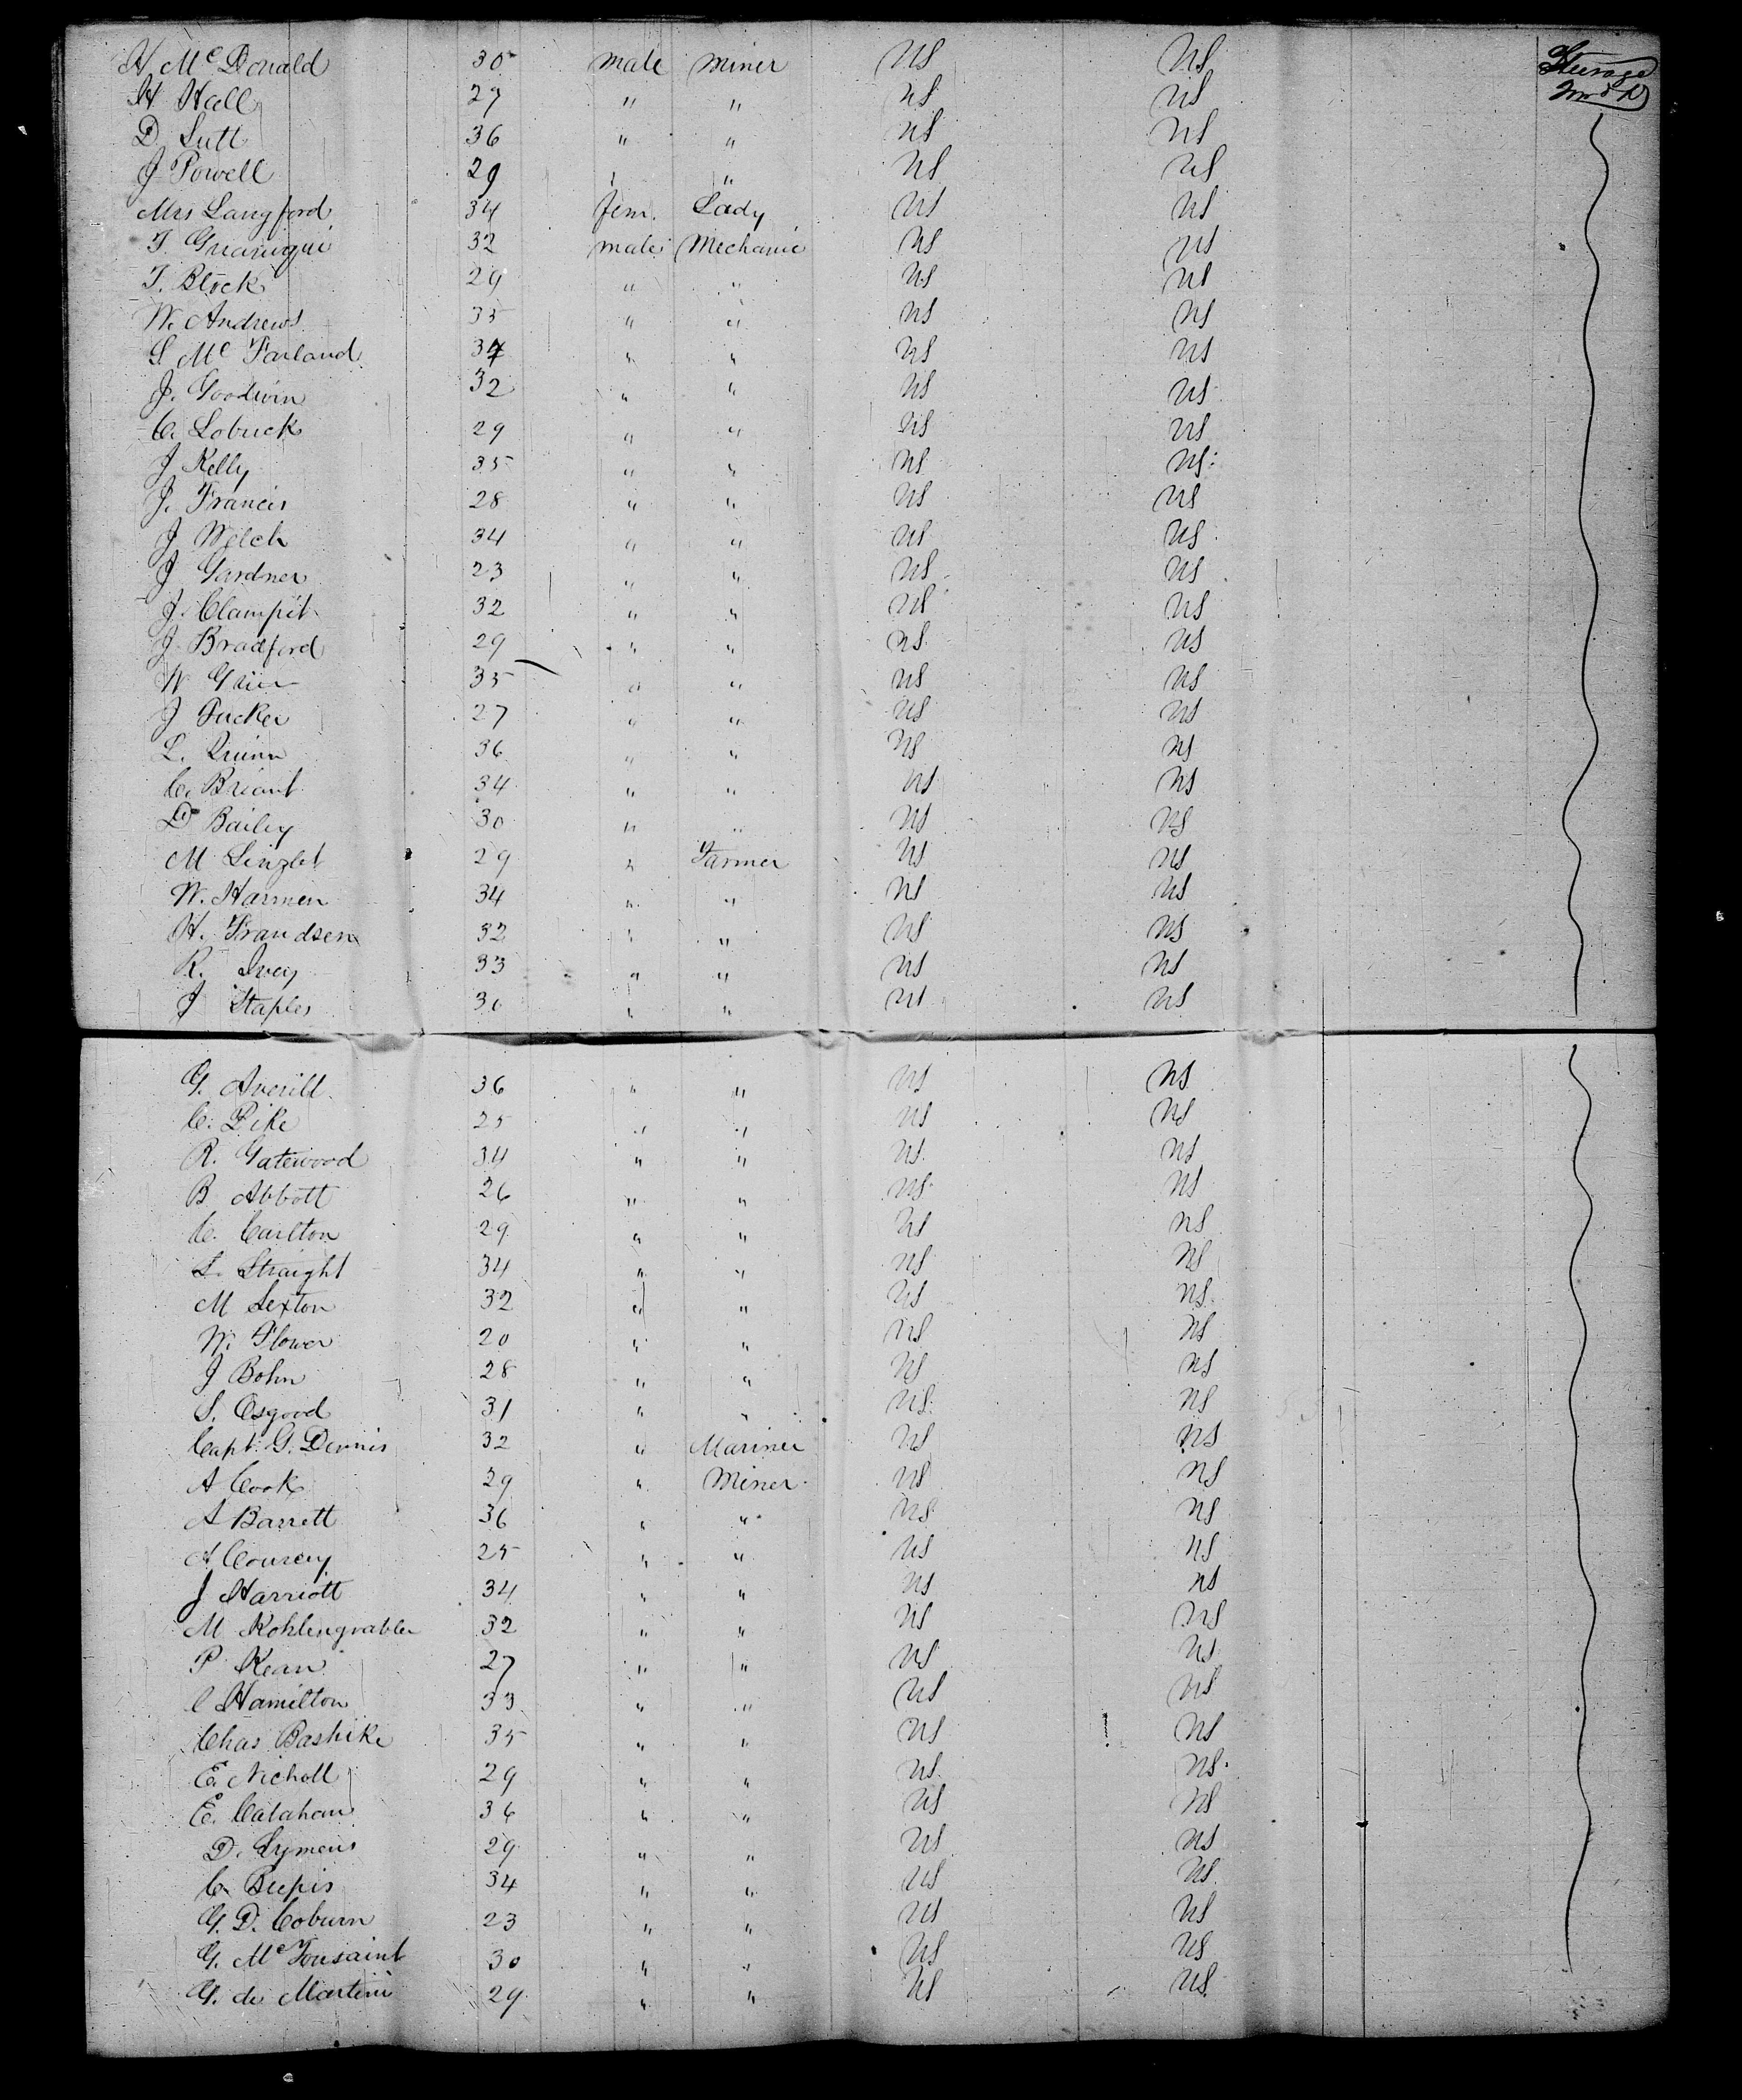 H. McDonald 30 male miner US US Steerage
H Hall 27 " " US US
D. Sutt 36 " " US US
J Powell 29 " " US US
Mrs Langford 34 fem. Lady US US
T. 32 male Mechanic US US
T. Block 29 " " US US
W. Andrews 35 " " US US
S McFarland 34 " " US US
J. Goodwin 32 " " US US
C. Lobuck 29 " " US US
J Kelly 35 " " US US
J. Francis 28 " " US US
J Welch 34 " " US US
J Gardner 23 " " US US
J. Clampit 32 " " US US
J. Bradford 29 " " US US
W Grier 35 " " US US
J Tucker 27 " " US US
L. Quinn 36 " " US US
C. Briant 34 " " US US
D Bailey 30 " " US US
M 29 " Farmer US US
W. Harmen 34 " " US US
H. Frandsen 32 " " US US
R. Ivey 33 " " US US
J Staples 30 " " US US
G. Averill 36 " " US US
C. Pike 25 " " US US
R. Gatewood 34 " " US US
B Abbott 26 " " US US
C. Carlton 29 " " US US
L. Straight 34 " " US US
M Sexton 32 " " US US
W. Flower 20 " " US US
J Bohn 28 " " US US
S. Osgood 31 " " US US
Capt. G. Dennis 32 " Mariner US US
A Cook 29 " Miner US US
A Barrett 36 " " US US
A Courcey 25 " " US US
J Harriott 34 " " US US
M Kohlengrabler 32 " " US US
P Kean 27 " " US US
C Hamilton 33 " " US US
Chas Bashike 35 " " US US
E. Nicholl 29 " " US US
E. Calahan 36 " " US US
D. Lymens 29 " " US US
C. 34 " " US US
G. D. Coburn 23 " " US US
G. McTousaint 30 " " US US
G. de Martini 29 " " US US